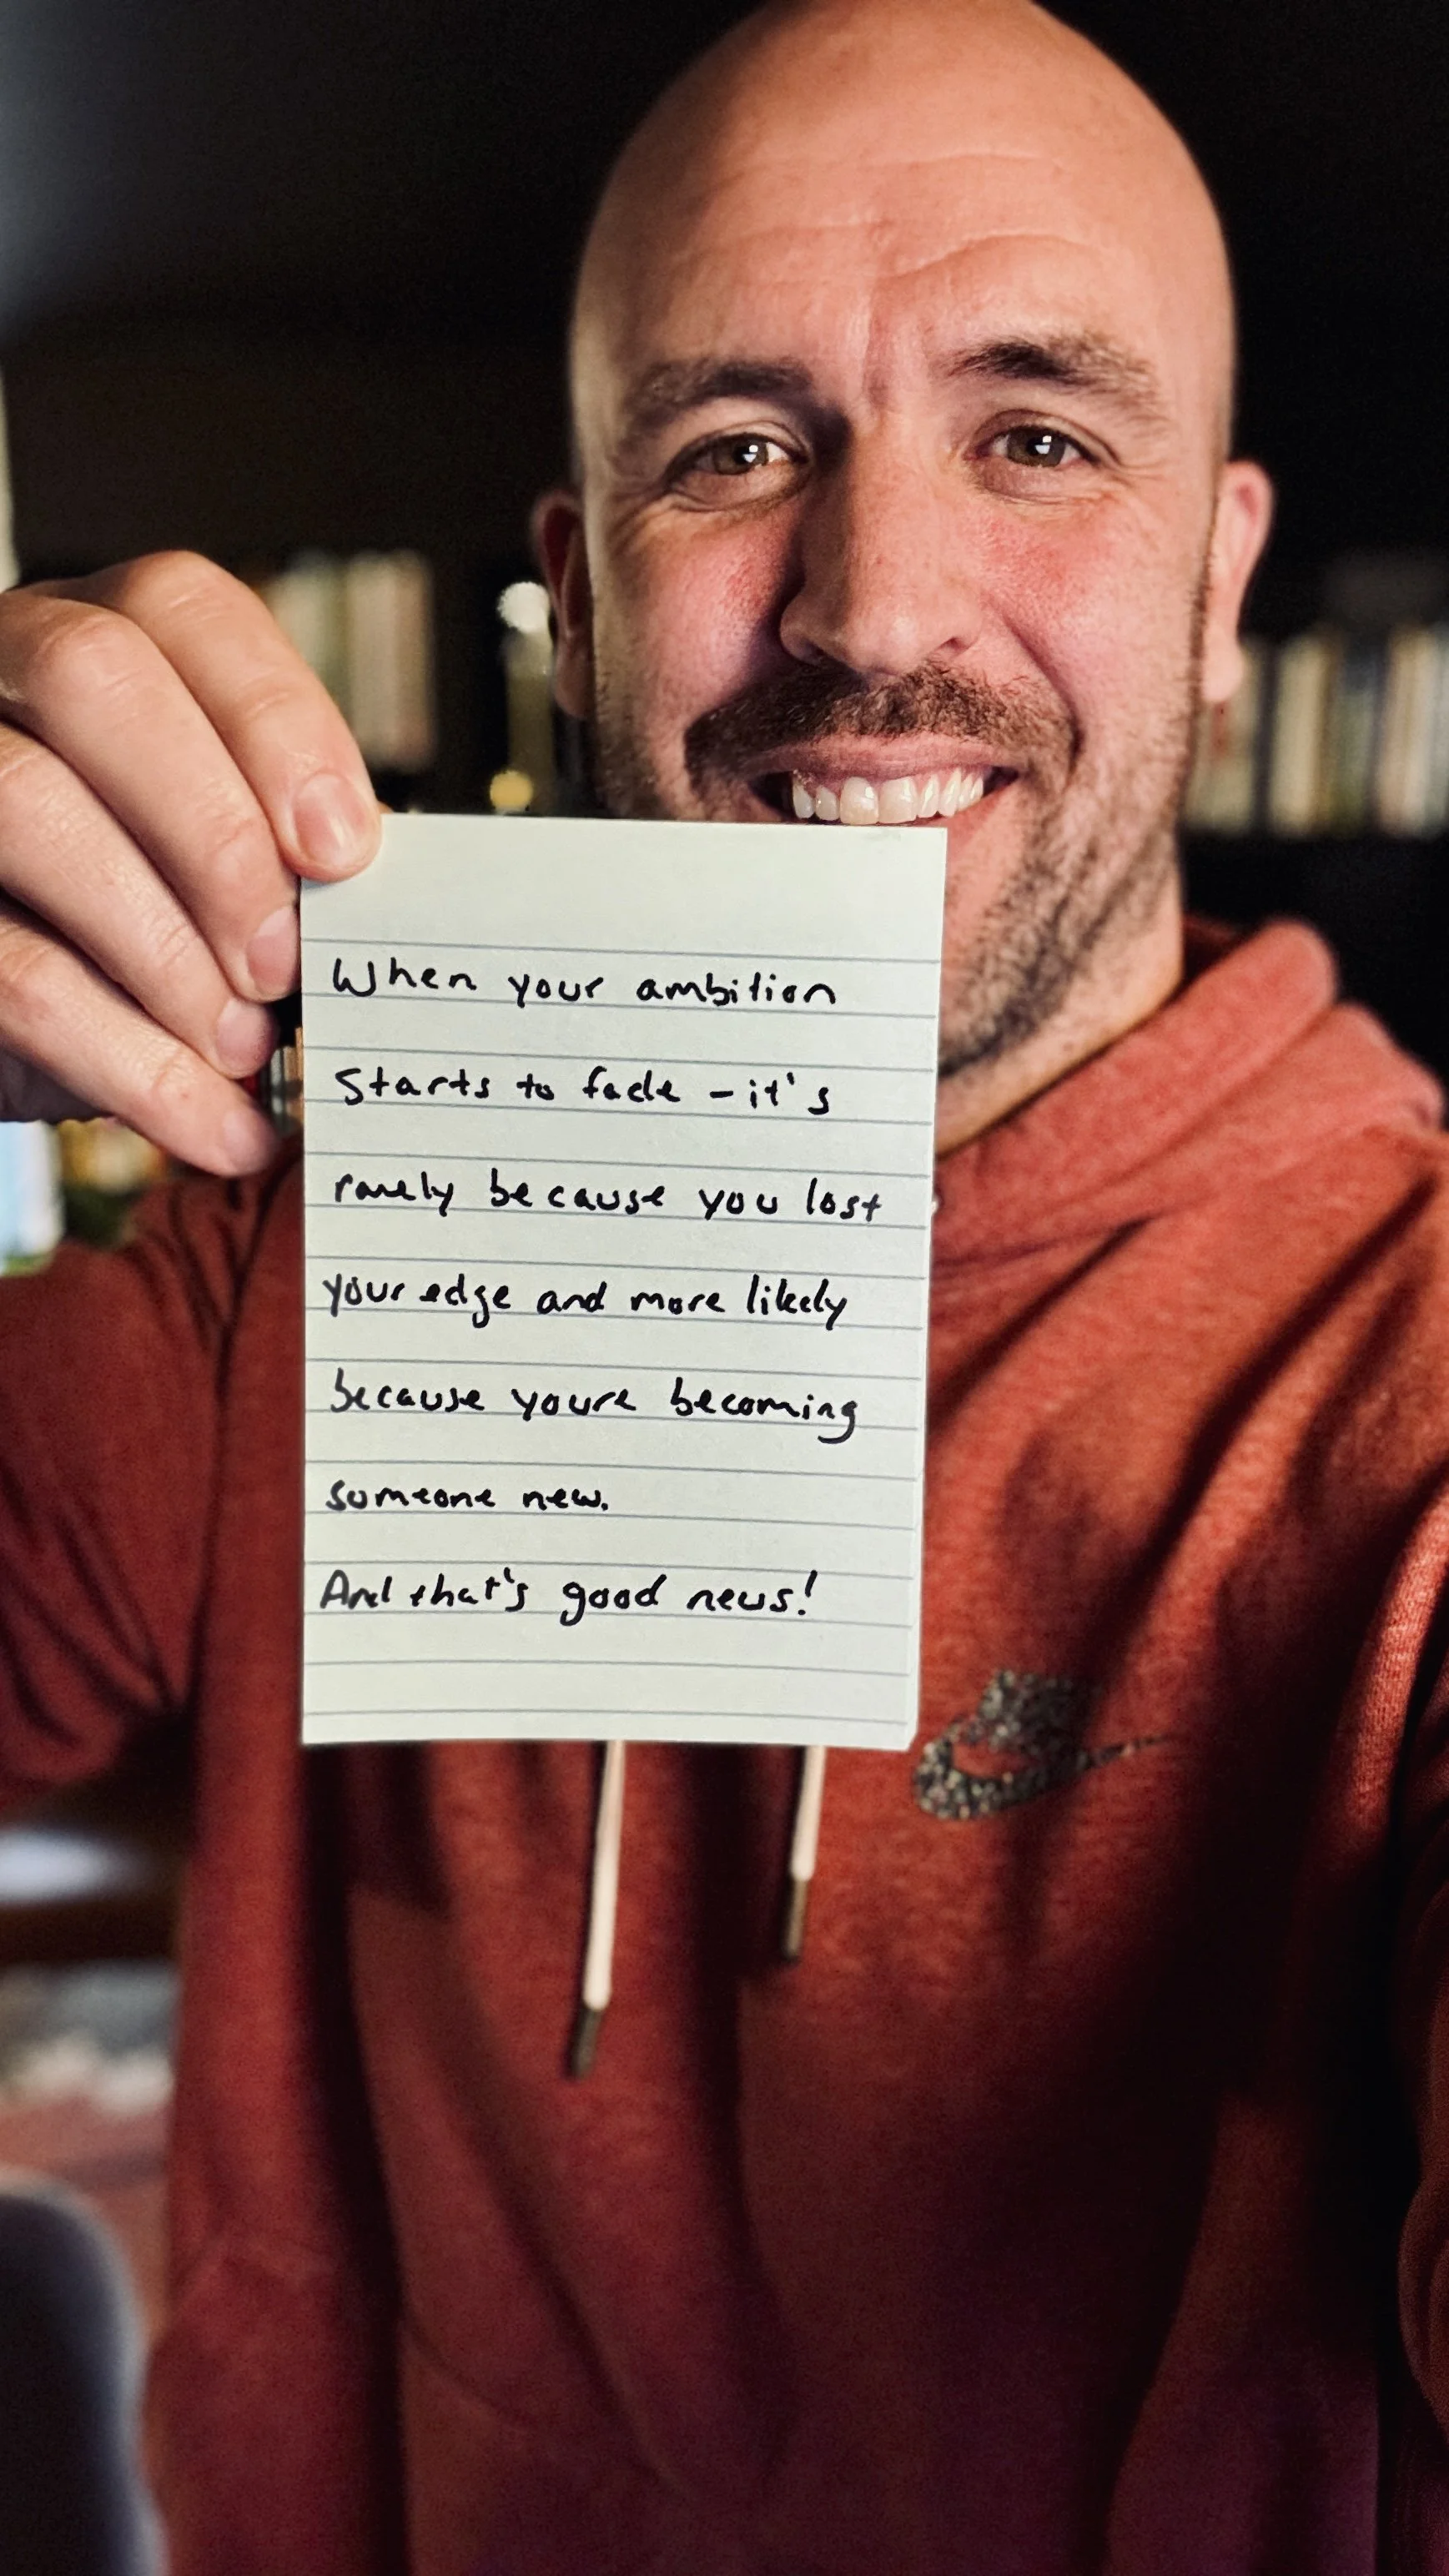 When your ambition
Starts to fade - it's
rarely because you lost
your edge and more likely
because youre becoming
someone new.
And that's good news!